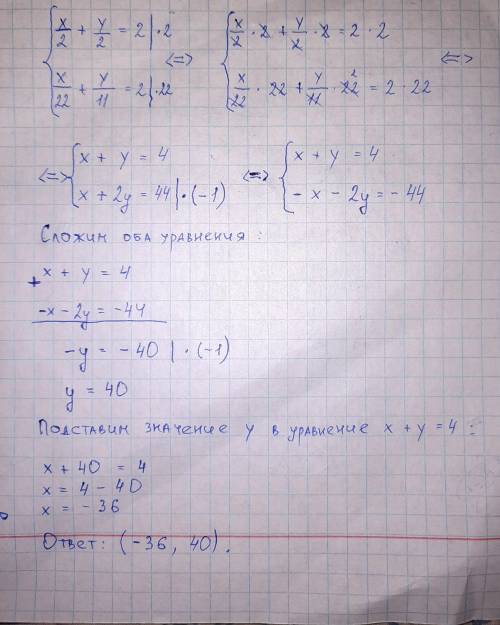 x/2 + y/2 = 2 | · 2 <=> x/2 · 2 + y/2 · 2 = 2 · 2 <=>
x/22 + y/11 = 2 | · 22 x/22 · 22 + y/11 · 22 2 = 2 · 22
<=> x + y = 4 <=> x + y = 4
x + 2y = 44 | · (-1) - x - 2y = - 44
Сложим оба уравнения :
+ x + y = 4
-x - 2y = -44
-y = - 40 | · (-1)
y = 40
Подставим значение y в уравнение x + y = 4 :
x + 40 = 4
x = 4 - 40
x = - 36
Ответ: (-36, 40).